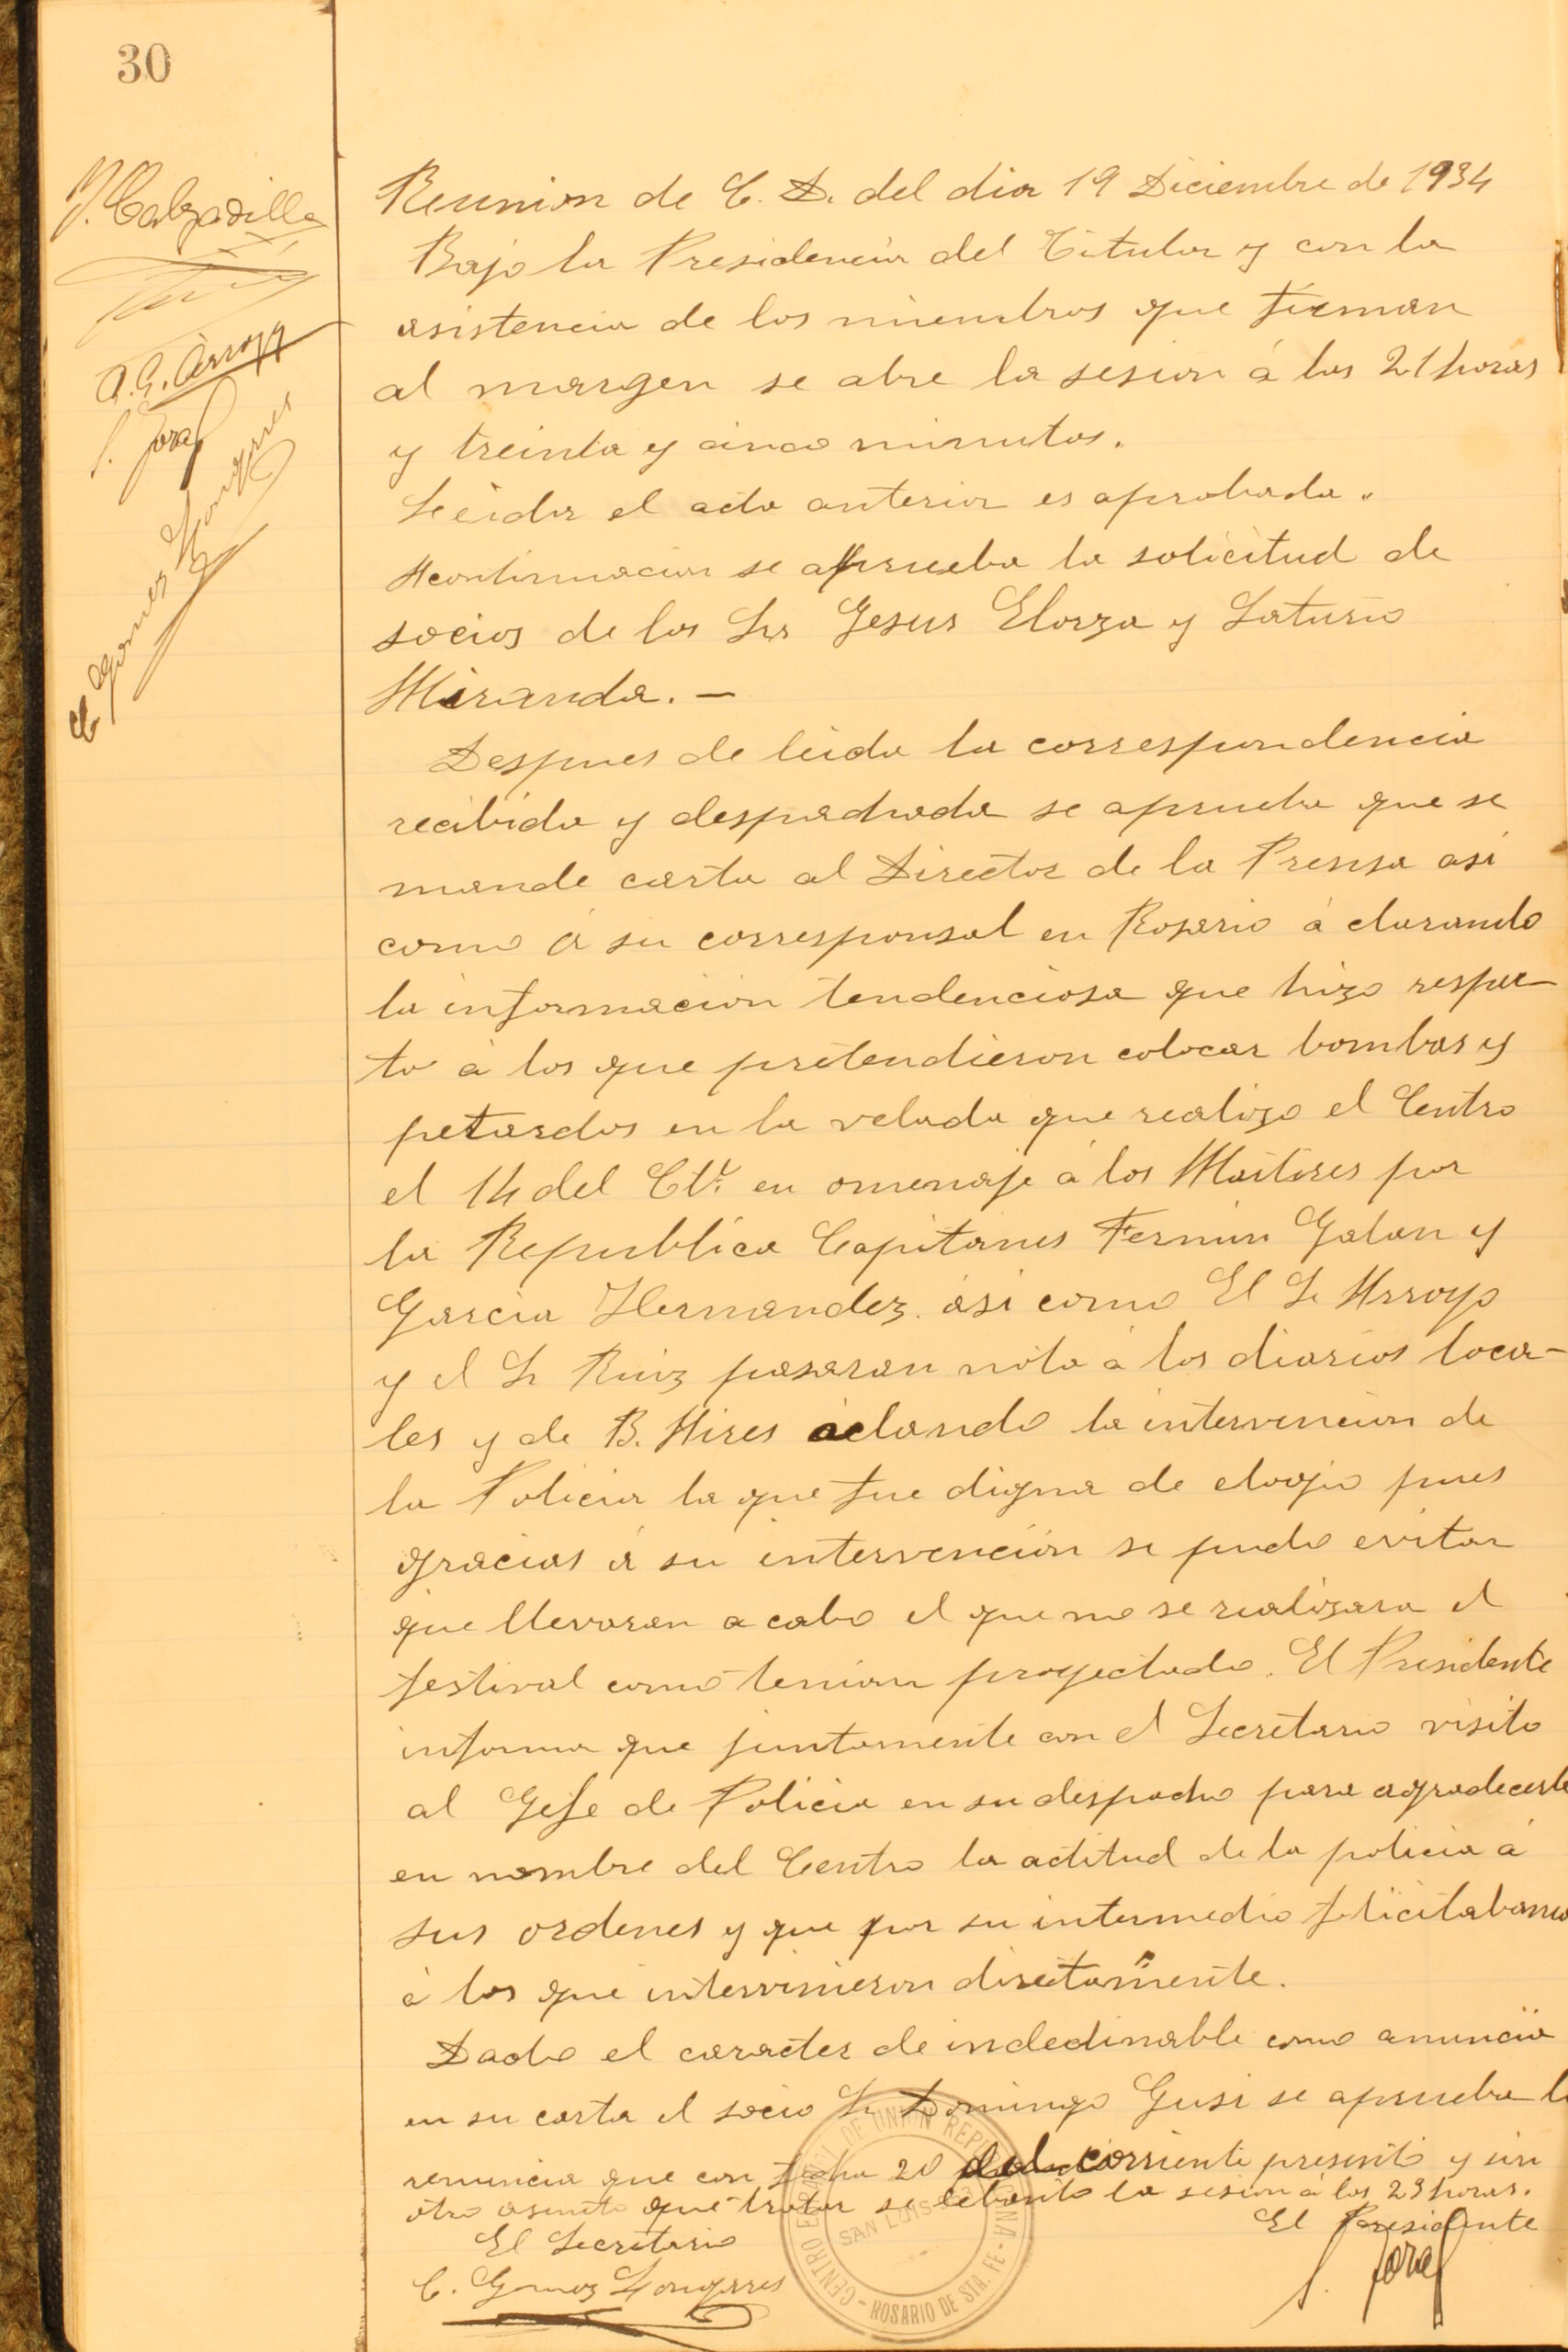 30
J. Calzadilla
A. G. Arroyo
S. Jora
C. Gomez Longares
Reunion de C. D. del dia 19 Diciembre de 1934
Bajo la Presidencia del Titular y con la
asistencia de los miembros que firman
al margen se abre la sesion á las 21 horas
y treinta y cinco minutos.
Leida el acta anterior es aprobada.
Acontinuacion se aprueba la solicitud de
socios de los Srs Jesus Elorza y Saturio
Miranda. —
Despues de leida la correspondencia
recibida y despachada se aprueba que se
mande carta al Director de la Prensa asi
como á su corresponsal en Rosario á clarando
la informacion tendenciosa que hizo respec-
to á los que pretendieron colocar bombas y
petardos en la velada que realizo el Centro
el 14 del Cte. en omenaje á los Maitires por
la Republica Capitanes Fermin Galan y
Garcia Hernandez. asi como El Sr Arroyo
y el Sr Ruiz pasaran nota á los diarios loca-
les y de B. Aires aclando la intervencion de
la Policia la que fue digna de elogio pues
gracias á su intervención se pudo evitar
que llevaran a cabo el que no se realizara el
festival como tenian proyectado. El Presidente
informa que juntamente con el Secretario visito
al Gefe de Policia en su despacho para agradecerle
en nombre del Centro la actitud de la policia á
sus ordenes y que por su intermedio felicitabamos
á los que intervinieron directamente.
Dado el caracter de indeclinable como anuncia
en su carta el socio Sr Domingo Gusi se aprueba la
renuncia que con fecha 20 del corriente presento y sin
otro asunto que tratar se lebanto la sesion á las 23 horas.
El Secretario
El Presidente
C. Gomez Longares
S. Jora
CENTRO ESPAÑOL DE UNION REPUBLICANA
SAN LUIS
- ROSARIO DE STA. FE -